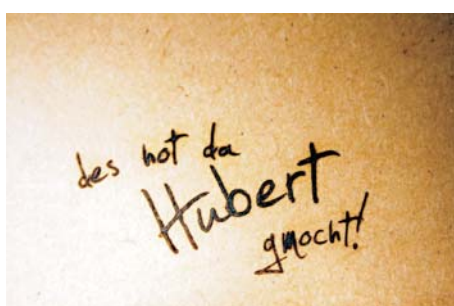 des hot da
Hubert
gmocht!